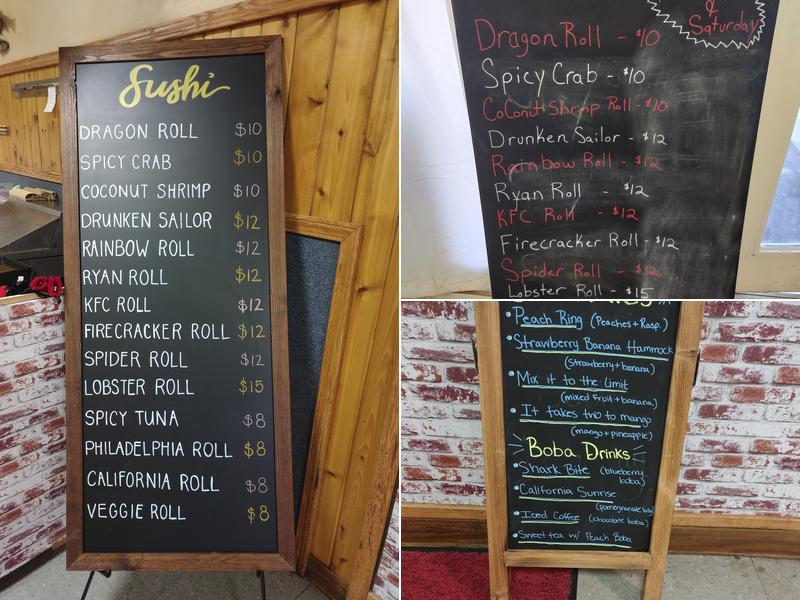 Sushi
DRAGON ROLL $10
SPICY CRAB $10
COCONUT SHRIMP $10
DRUNKEN SAILOR $12
RAINBOW ROLL $12
RYAN ROLL $12
KFC ROLL $12
FIRECRACKER ROLL $12
SPIDER ROLL $12
LOBSTER ROLL $15
SPICY TUNA $8
PHILADELPHIA ROLL $8
CALIFORNIA ROLL $8
VEGGIE ROLL $8
&
Saturday
Dragon Roll - $10
Spicy Crab - $10
Coconut Shrimp Roll - $10
Drunken Sailor - $12
Rainbow Roll - $12
Ryan Roll - $12
KFC Roll - $12
Firecracker Roll - $12
Spider Roll - $12
Lobster Roll - $15
• Peach Ring (Peaches + Rasp.)
• Strawberry Banana Hammock
(strawberry + banana)
• Mix it to the limit
(mixed fruit + banana)
• It takes two to mango
(mango + pineapple)
Boba Drinks
• Shark Bite (blueberry
boba)
• California Sunrise
(pomegranate boba)
• Iced Coffee (chocolate boba)
• Sweet tea w/ Peach Boba